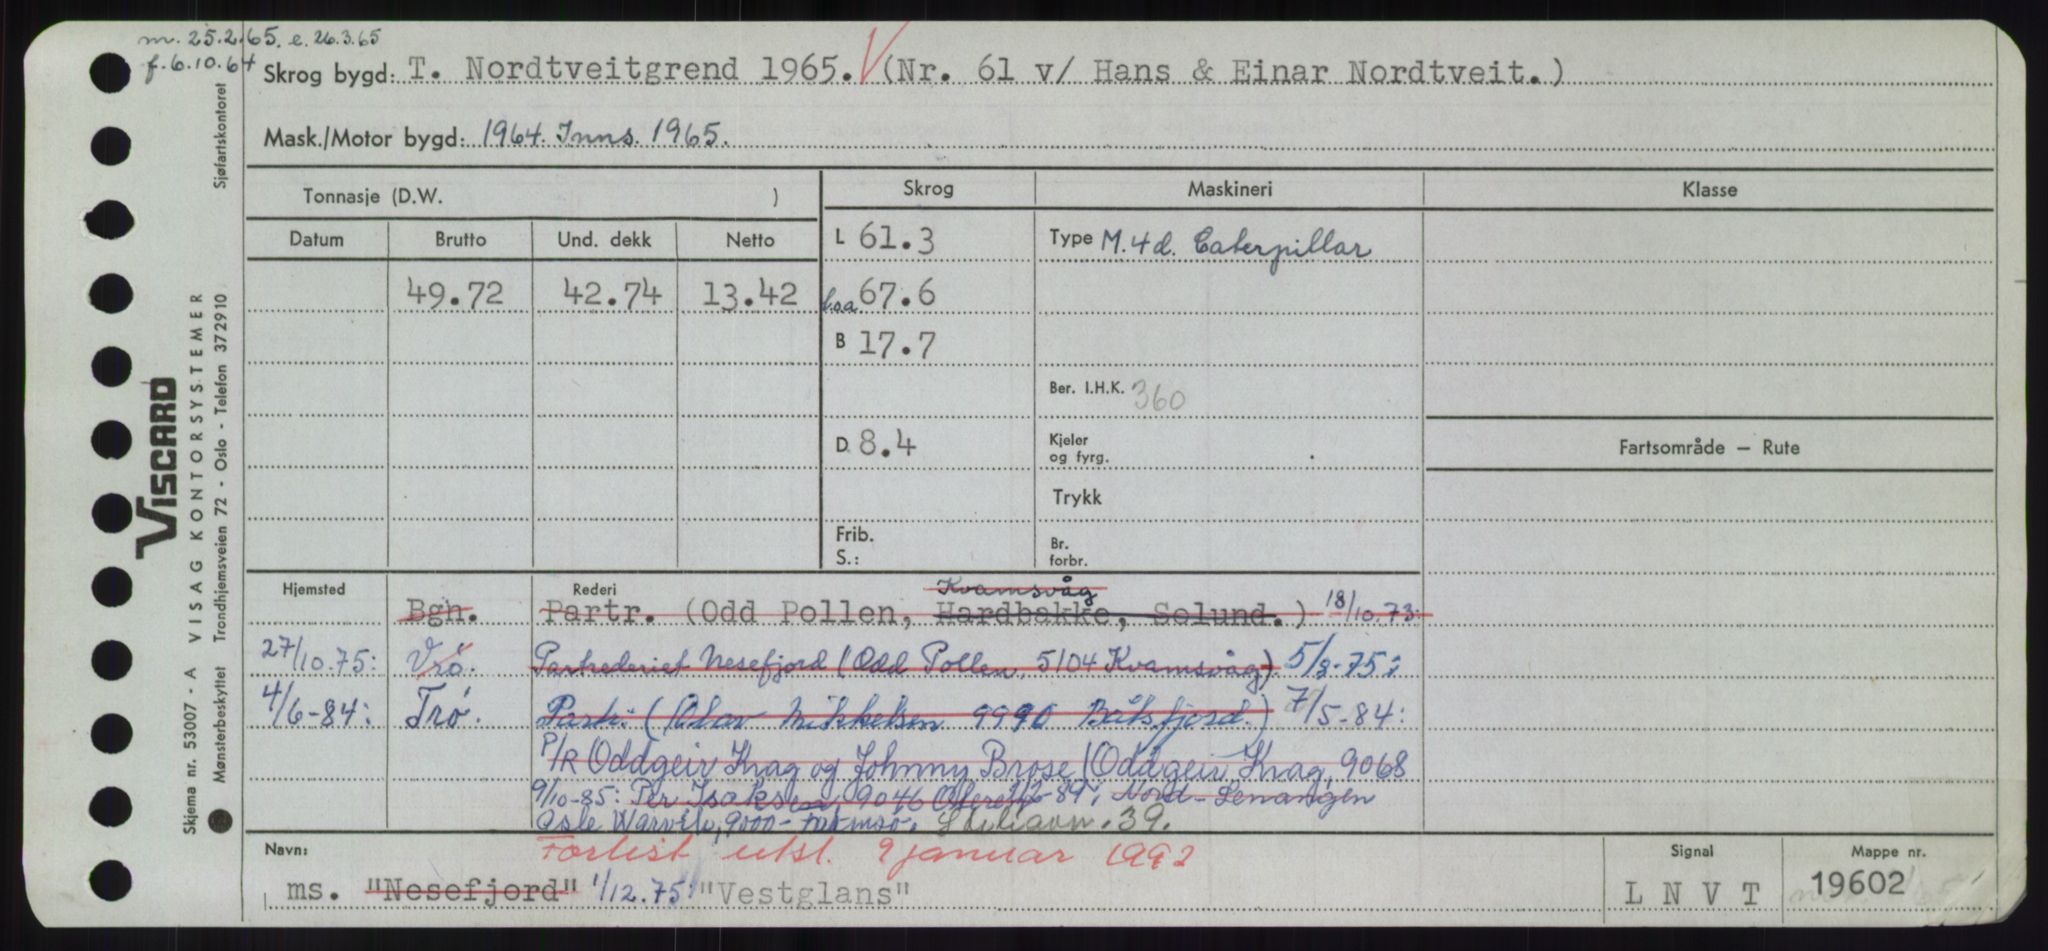 m. 25.2.65. e. 26.3.65
f. 6.10.64
Skrog bygd: T. Nordtveitgrend 1965. (Nr. 61 v/ Hans & Einar Nordtveit.)
Mask./Motor bygd: 1964. Inns. 1965.
Tonnasje (D.W. )
Skrog
Maskineri
Klasse
Datum
Brutto
Und. dekk
Netto
L 61.3
Type M.4d. Caterpillar
49.72
42.74
13.42
l.o.a. 67.6
B 17.7
Ber. I.H.K. 360
D 8.4
Kjeler
og fyrg.
Fartsområde — Rute
Trykk
Frib.
S.:
Br.
forbr.
Hjemsted
Rederi
Kvamsvåg
Bgh. Partr. (Odd Pollen, Hardbakke, Solund.) 18/10.73:
27/10.75: Vrö. Partrederiet Nesefjord (Odd Pollen, 5104 Kvamsvåg) 5/8-75:
4/6-84: Trö. Partr. (Olav Mikkelsen 9990 Båtsfjord.) 7/5-84:
P/R Oddgeir Krag og Johnny Brose (Oddgeir Krag, 9068
9/10-85: Per Isaksen, 9046 Oteren 2-89; Nord-Lenangen
Asle 9000 - Tromsø. 39.
Navn:
Forlist utsl. 9 januar 1992
ms. "Nesefjord" 1/12.75: "Vestglans"
Signal
L N V T
Mappe nr.
19602
VISCARD
VISAG KONTORSYSTEMER
Skjema nr. 53007 - A
Mønsterbeskyttet Trondhjemsveien 72 - Oslo - Telefon 372910 Sjøfartskontoret